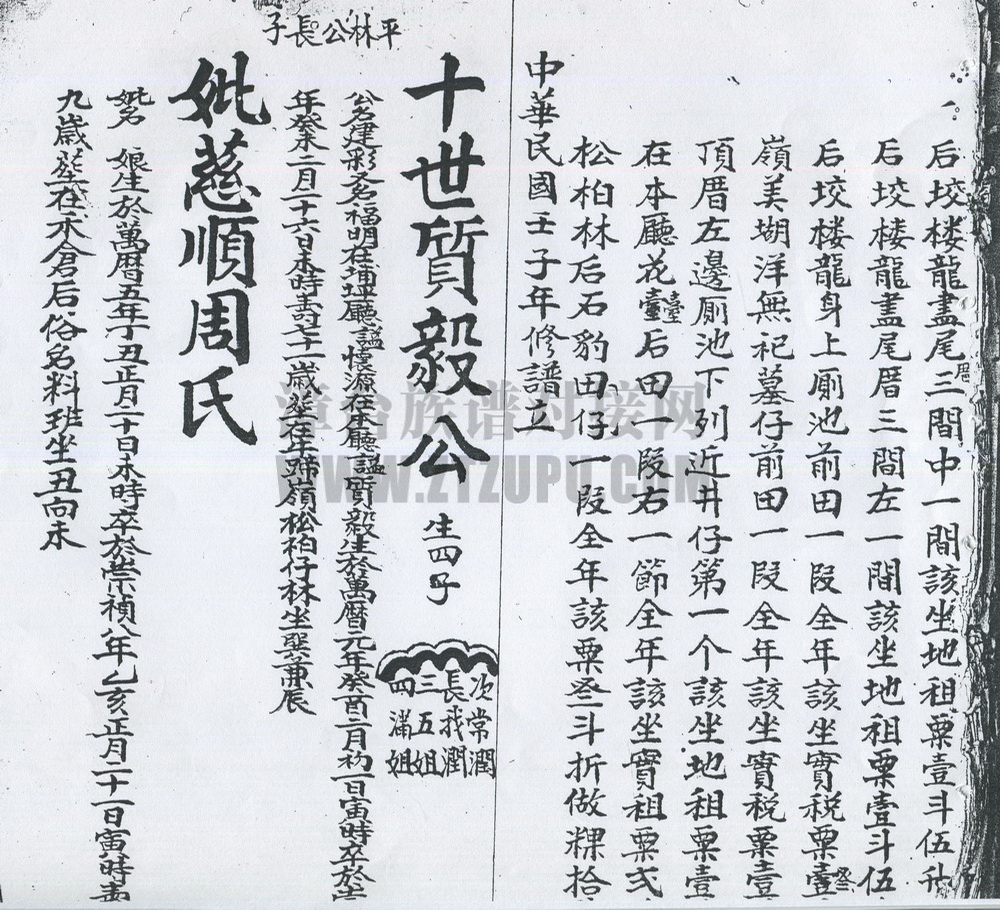 后垵楼龍盡尾厝三間中一間該坐地租粟壹斗伍升
后垵楼龍盡尾厝三間左一間該坐地租粟壹斗伍
后垵楼龍身上厠池前田一段全年該坐實税粟壹
嶺美湖洋無祀墓仔前田一段全年該坐實税粟壹
頂厝左邊厠池下列近井仔第一个該坐地租粟壹
在本廳花臺后田一段右一節全年該坐實租粟弍
松柏林后石豹田仔一段全年該粟叁斗折做粿拾
中華民國壬子年修譜立
平林公長子
十世質毅公 生四子
次常潤
長我潤
三五姐
四滿姐
公名建彩又名福明在埔坵廳謚懷源在本廳謚質毅生於萬曆元年癸酉二月初一日寅時卒於
年癸未二月二十六日未時壽七十一歲塟在牛蹄嶺松柏仔林坐巽兼辰
妣慈順周氏
妣名 娘生於萬曆五年丁丑正月二十日未時卒於崇禎八年乙亥正月二十一日寅時壽
九歲塟在禾倉后俗名料班坐丑向未
漳台族谱对接网
WWW.ZTZUPU.COM